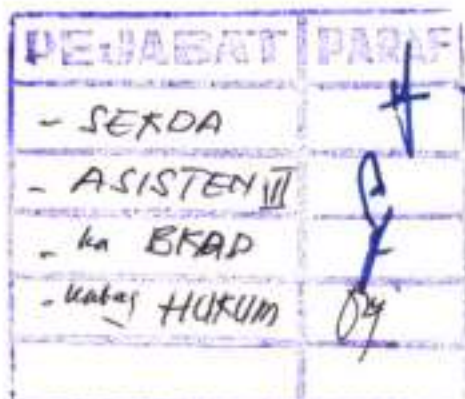 PEJABAT PARAF
- SEKDA
- ASISTEN III
- ka BKAD
- Kabag HUKUM